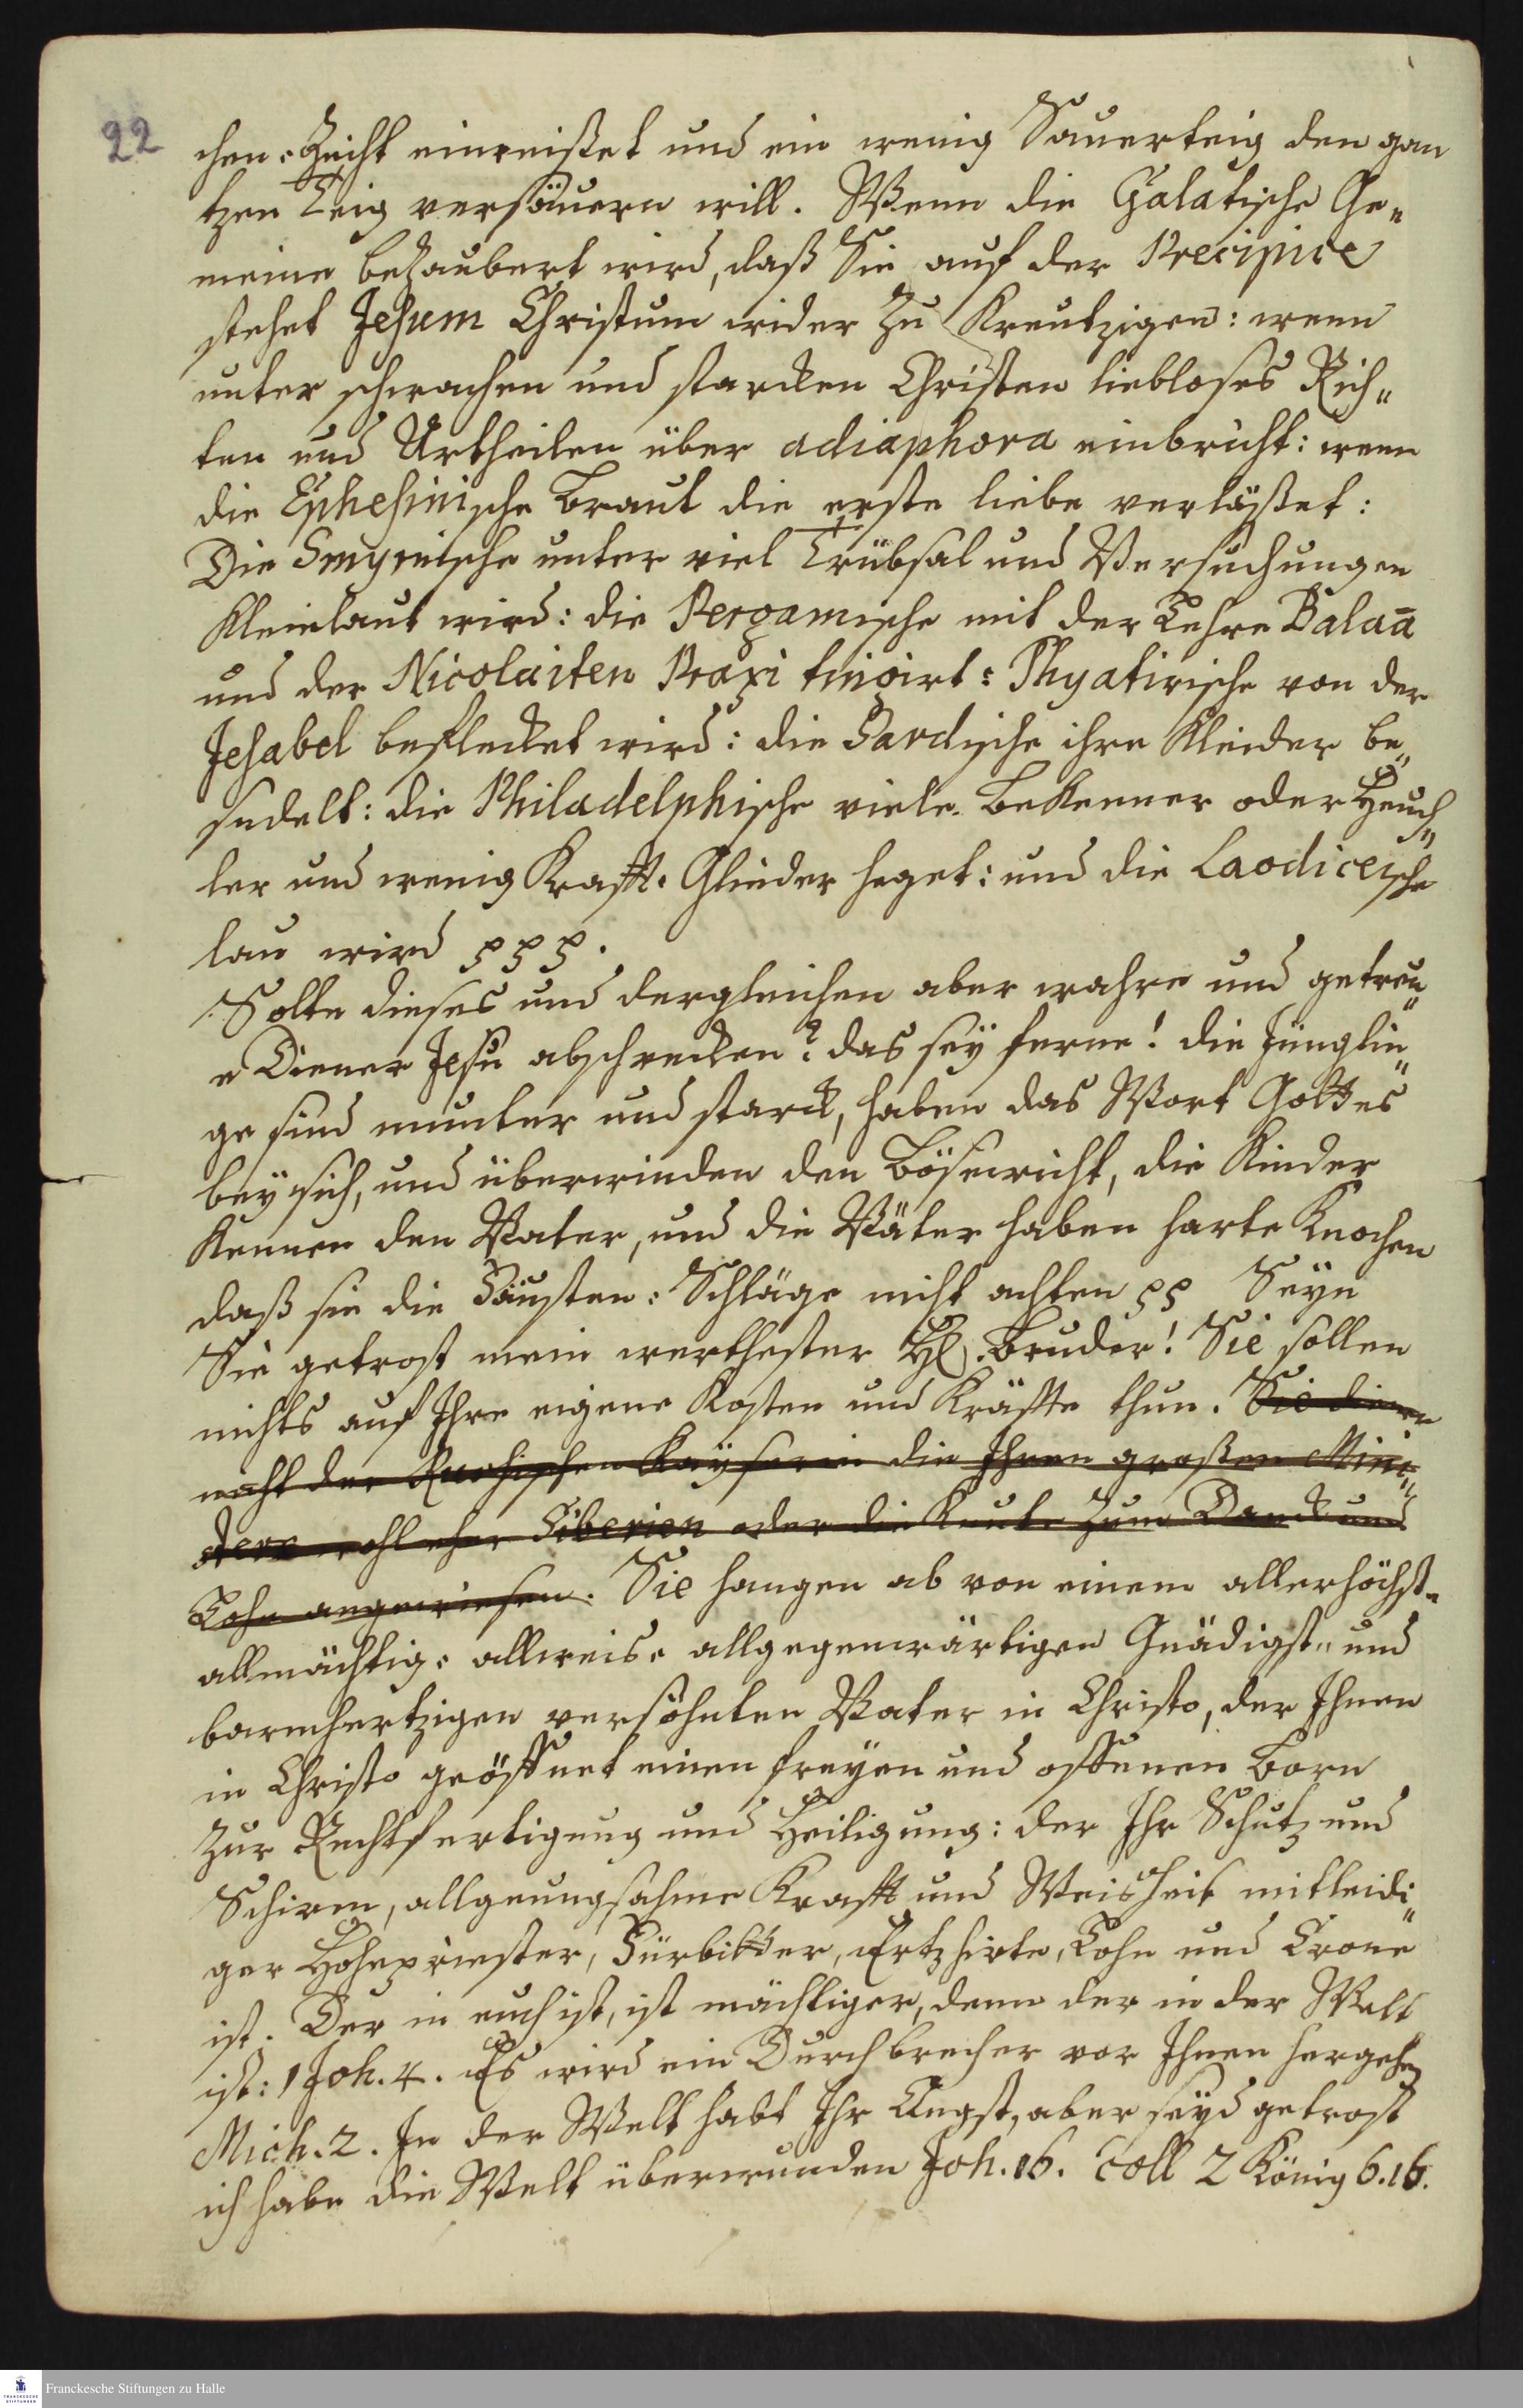 22
chen-Zucht einreißet und ein wenig Sauerteig den gan
tzen Teig versäuern will. Wenn die Galatische Ge-
meine bezaubert wird, daß Sie auf der Precipice
stehet Jesum Christum wider zu Kreutzigen: wenn
unter schwachen und starcken Christen liebloses Rich-
ten und Urtheilen über adiaphora einbricht: wenn
die Ephesinische Braut die erste liebe verläßet:
Die Smyrnische unter viel Trübsal und Versuchungen
Kleinlaut wird: die Pergamische mit der Lehre Balaā
und der Nicolaiten Praxi tingirt: Thyatirische von der
Jesabel beflecket wird: die Sardische ihre Kleider be-
sudelt: die Philadelphische viele Bekenner oder Heuch-
ler und wenig Krafft-Glieder heget: und die Laodiceische
lau wird ppp.
Solte dieses und dergleichen aber wahre und getreu-
e Diener Jesu abschrecken? das seÿ ferne! die Jünglin-
ge sind munter und starck, haben das Wort Gottes
beÿ sich, und überwinden den Bösewicht, die Kinder
Kennen den Vater, und die Väter haben harte Knochen
daß sie die Fäusten-Schläge nicht achten pp Seÿn
Sie getrost mein werthester H. Bruder! Sie sollen
nichts auf Ihre eigene Kosten und Kräffte thun. Sie dienen
nicht der Rusischen Kaÿserin die Ihren großen Mini-
stern wohl eher Siberien oder die Knute zum Danck und
Lohn angewiesen. Sie hangen ab von einem allerhöchst-
allmächtig- allweis- allgegenwärtigen Gnädigst- und
barmhertzigen versöhnten Vater in Christo, der Ihnen
in Christo geöffnet einen freÿen und offenen Born
zur Rechtfertigung und Heiligung: der Ihr Schutz und
Schirm, allgenungsahme Krafft und Weisheit mitleidi-
ger Hohepriester, Fürbitter, Ertzhirte, Lohn und Crone
ist. Der in euch ist, ist mächtiger, denn der in der Welt
ist: 1 Joh. 4. Es wird ein Durchbrecher vor Ihnen hergehen
Mich. 2. In der Welt habt Ihr Angst, aber seÿd getrost
ich habe die Welt überwunden Joh. 16. coll 2 König 6.16.
Franckesche Stiftungen zu Halle